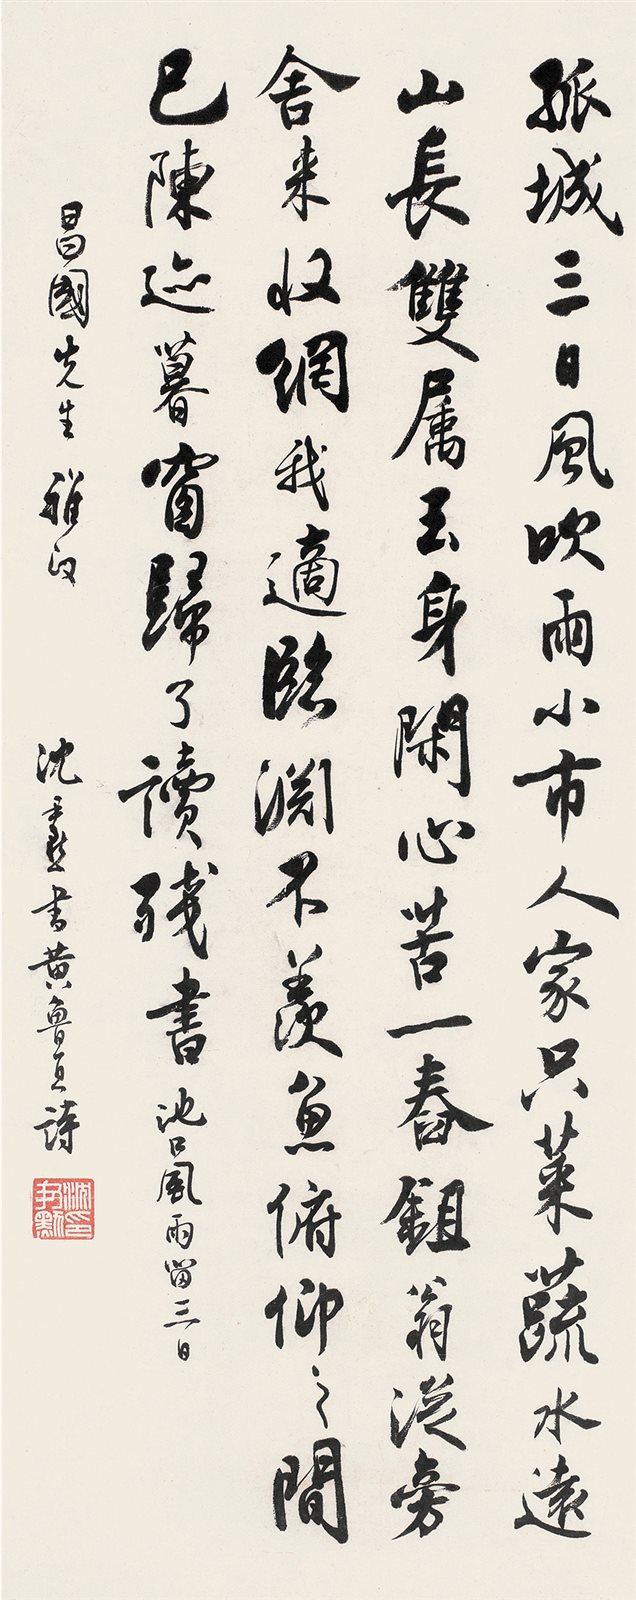 孤城三日風吹雨小市人家只菜蔬水遠
山長雙属玉身閑心苦一舂鉏翁従旁
舍来收網我適臨淵不羨魚俯仰之間
已陳迹暮窗歸了讀殘書池口風雨留三日
昌國先生雅政
沈尹默書黄魯直詩
沈尹默印